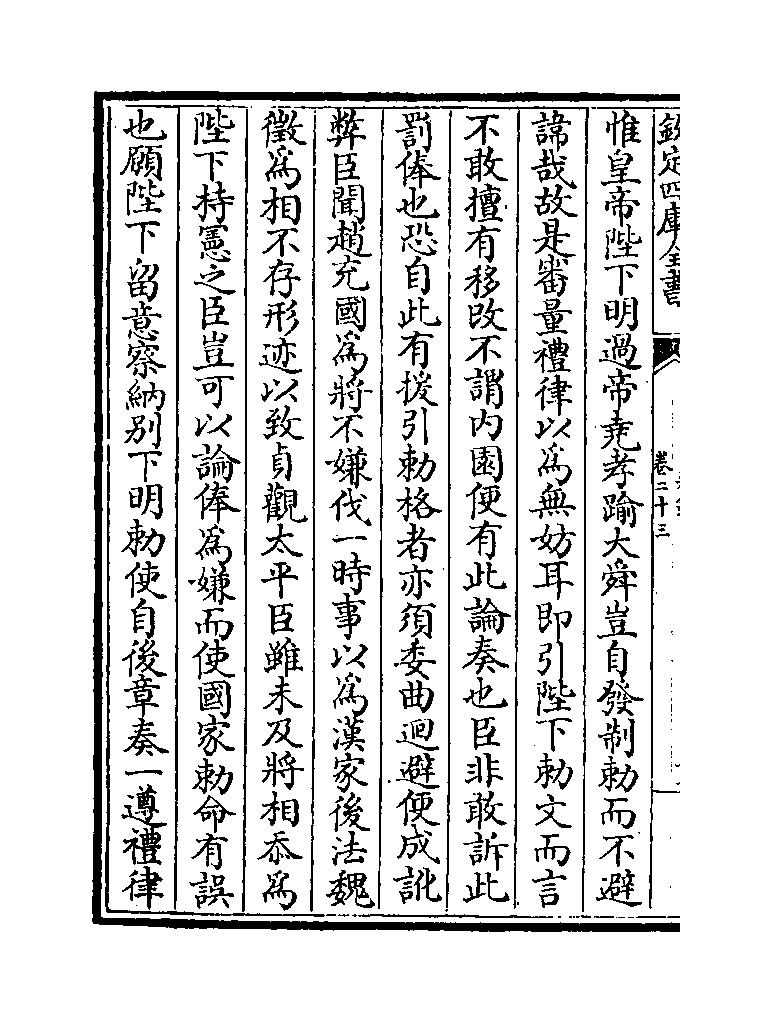 欽定四庫全書
卷二十三
惟皇帝陛下明過帝堯孝踰大舜豈自發制勅而不避
諱哉故是審量禮律以爲無妨耳即引陛下勅文而言
不敢擅有移改不謂内園便有此論奏也臣非敢訴此
罰俸也恐自此有援引勅格者亦須委曲迴避便成訛
弊臣聞趙充國爲將不嫌伐一時事以爲漢家後法魏
徵爲相不存形迹以致貞觀太平臣雖未及將相忝爲
陛下持憲之臣豈可以論俸爲嫌而使國家勅命有誤
也願陛下留意察納别下明勅使自後章奏一遵禮律